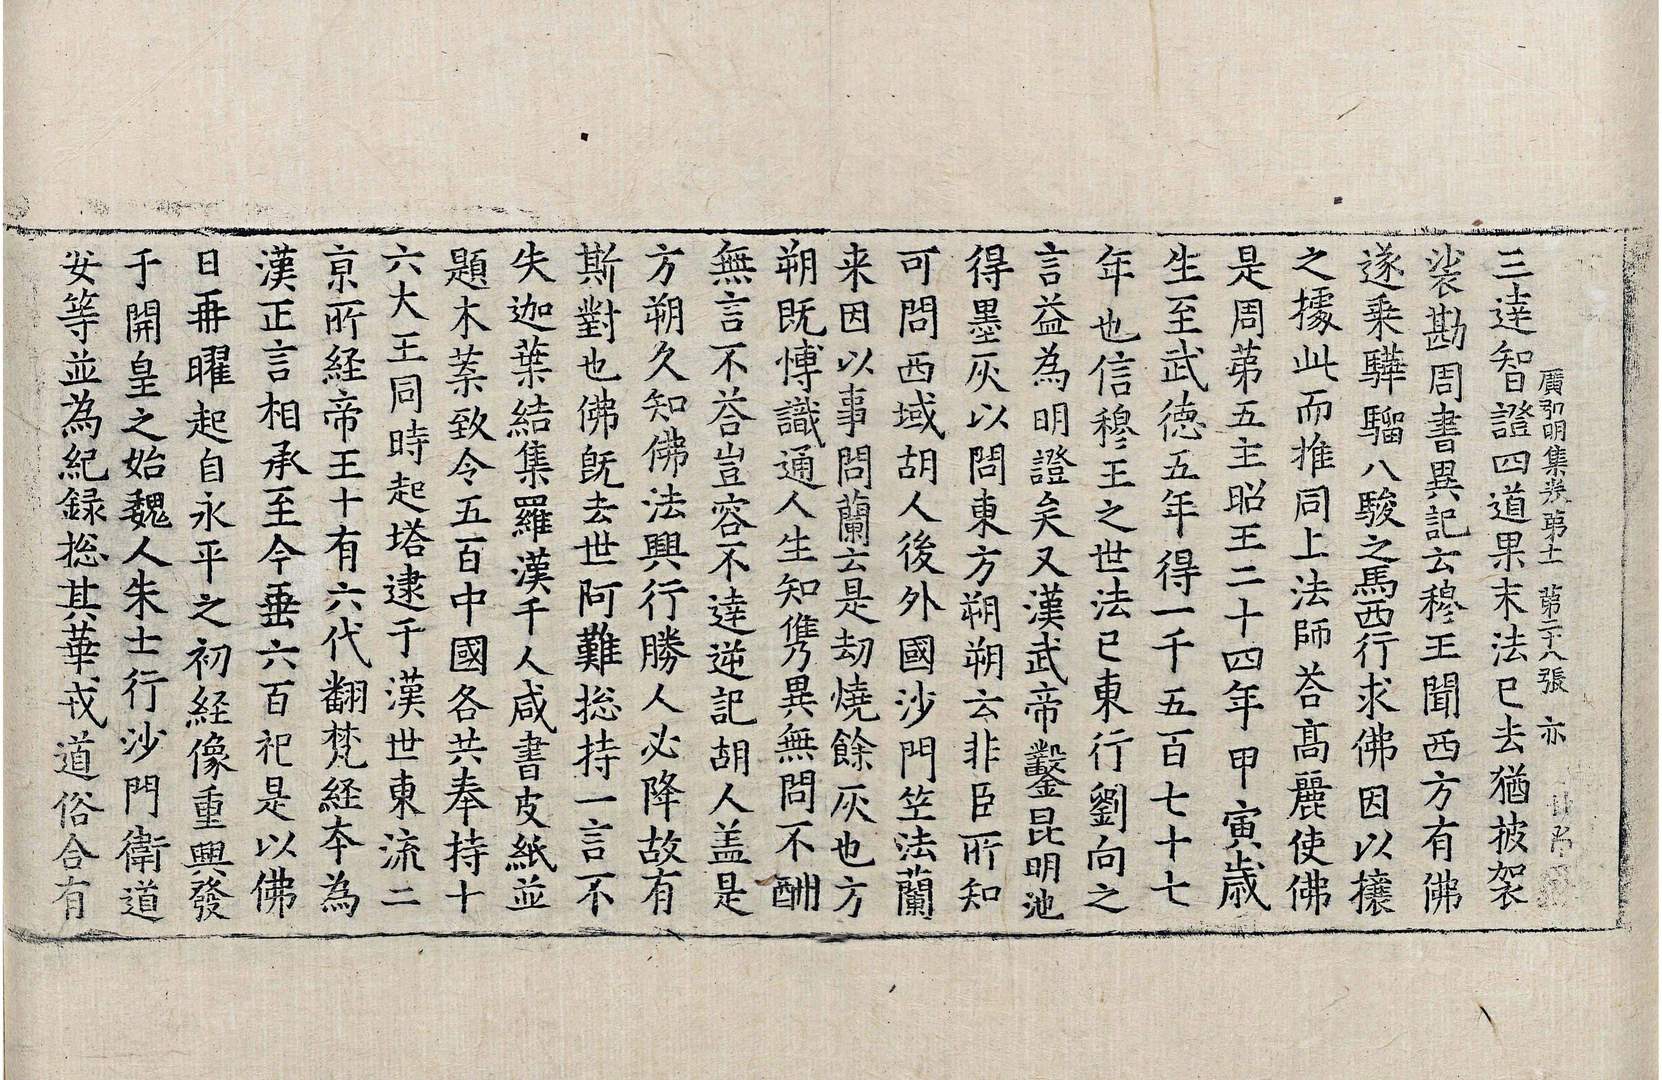 廣弘明集卷第十一 第二十八張 亦
三達智證四道果末法已去猶披袈
裟勘周書異記云穆王聞西方有佛
遂乗驊騮八駿之馬西行求佛因以攘
之據此而推同上法師荅髙麗使佛
是周苐五主昭王二十四年甲寅歳
生至武德五年得一千五百七十七
年也信穆王之世法已東行劉向之
言益為明證矣又漢武帝鑿昆明池
得墨灰以問東方朔朔云非臣所知
可問西域胡人後外國沙門竺法蘭
来因以事問蘭云是劫燒餘灰也方
朔既愽識通人生知雋異無問不酬
無言不荅豈容不達逆記胡人盖是
方朔久知佛法興行勝人必降故有
斯對也佛既去世阿難揔持一言不
失迦葉結集羅漢千人咸書皮紙並
題木葉致令五百中國各共奉持十
六大王同時起塔逮于漢世東流二
京所経帝王十有六代翻梵経本為
漢正言相承至今垂六百祀是以佛
日再曜起自永平之初経像重興發
于開皇之始魏人朱士行沙門衛道
安等並為紀録揔其華戎道俗合有